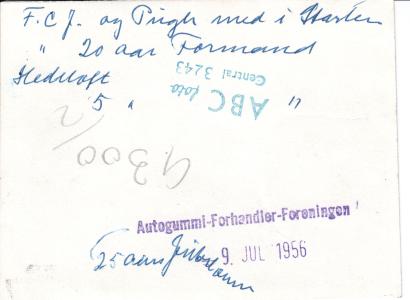 F.C.J. og Prigh med i Starten
" 20 aar Formand
Hedetoft
5 " "
ABC foto
Central 3243
9300/2
Autogummi-Forhandler-Foreningen
9. JUL 1956
25 aars Jubilæum